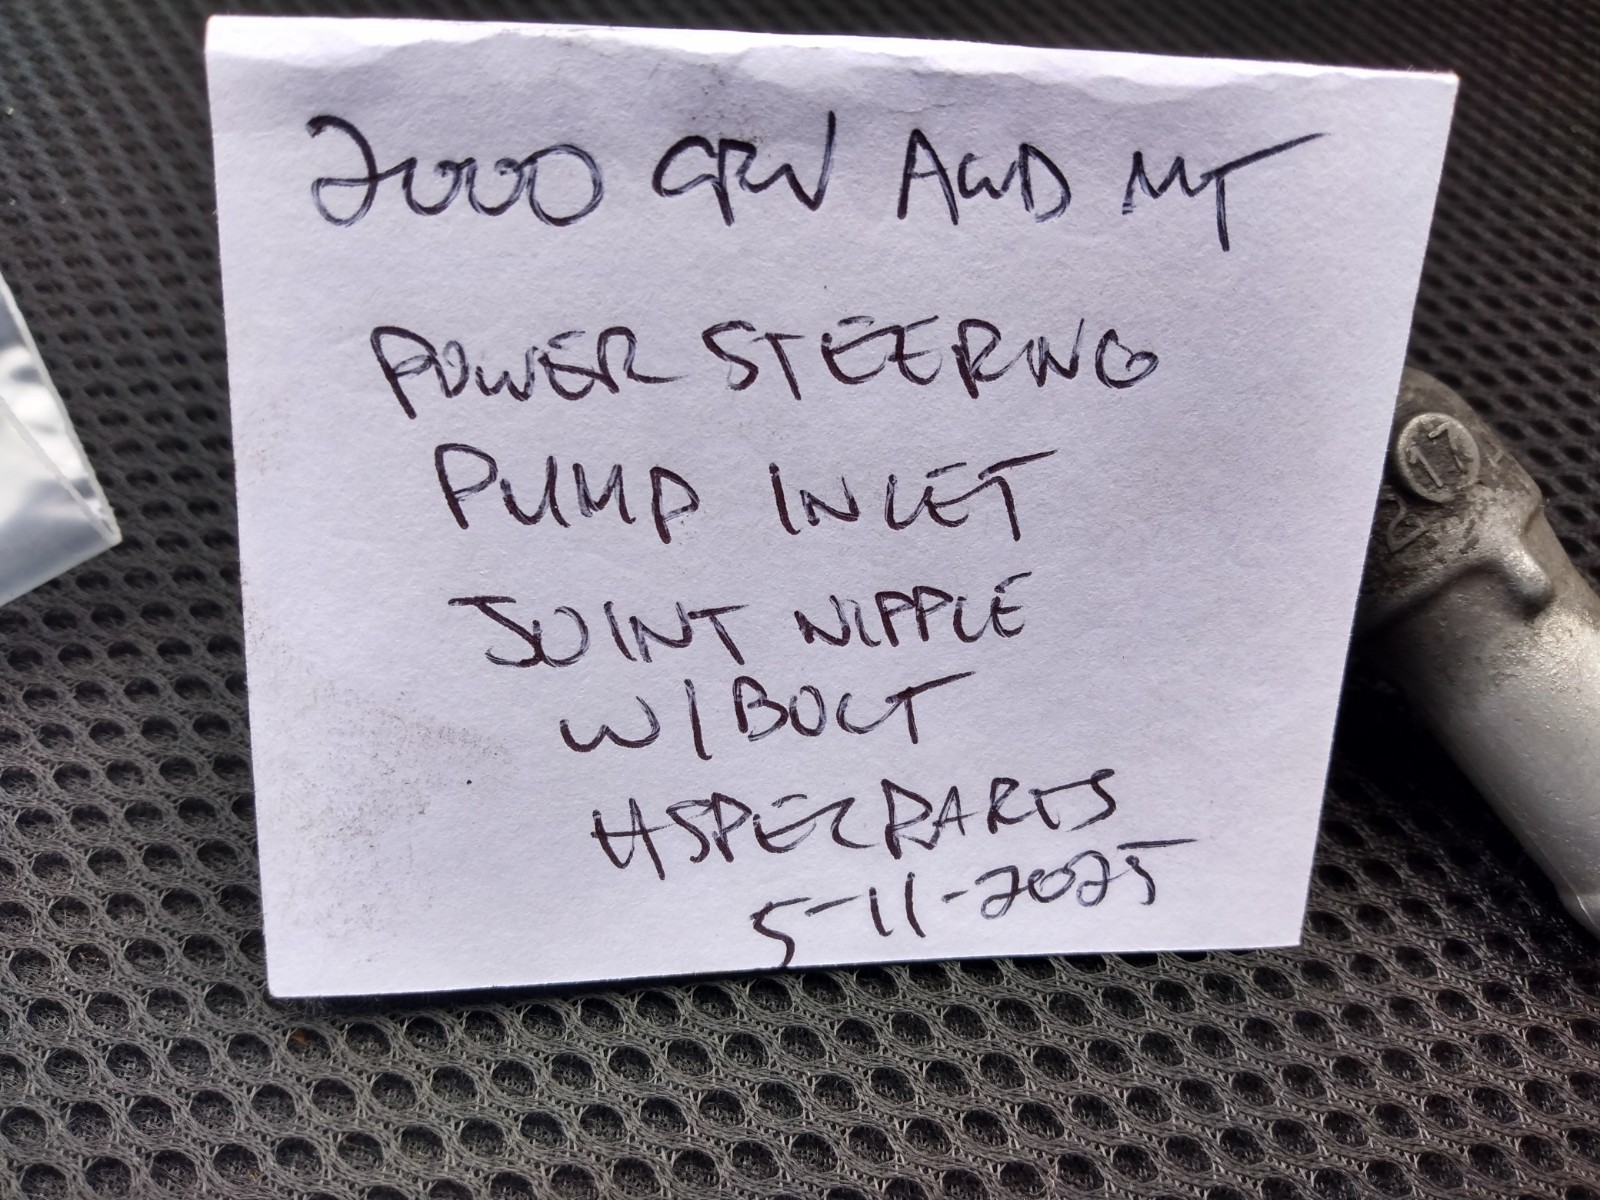 2000 CRV AWD MT
POWER STEERING
PUMP INLET
JOINT NIPPLE
W/BOLT
HSPECPARTS
5-11-2025
17